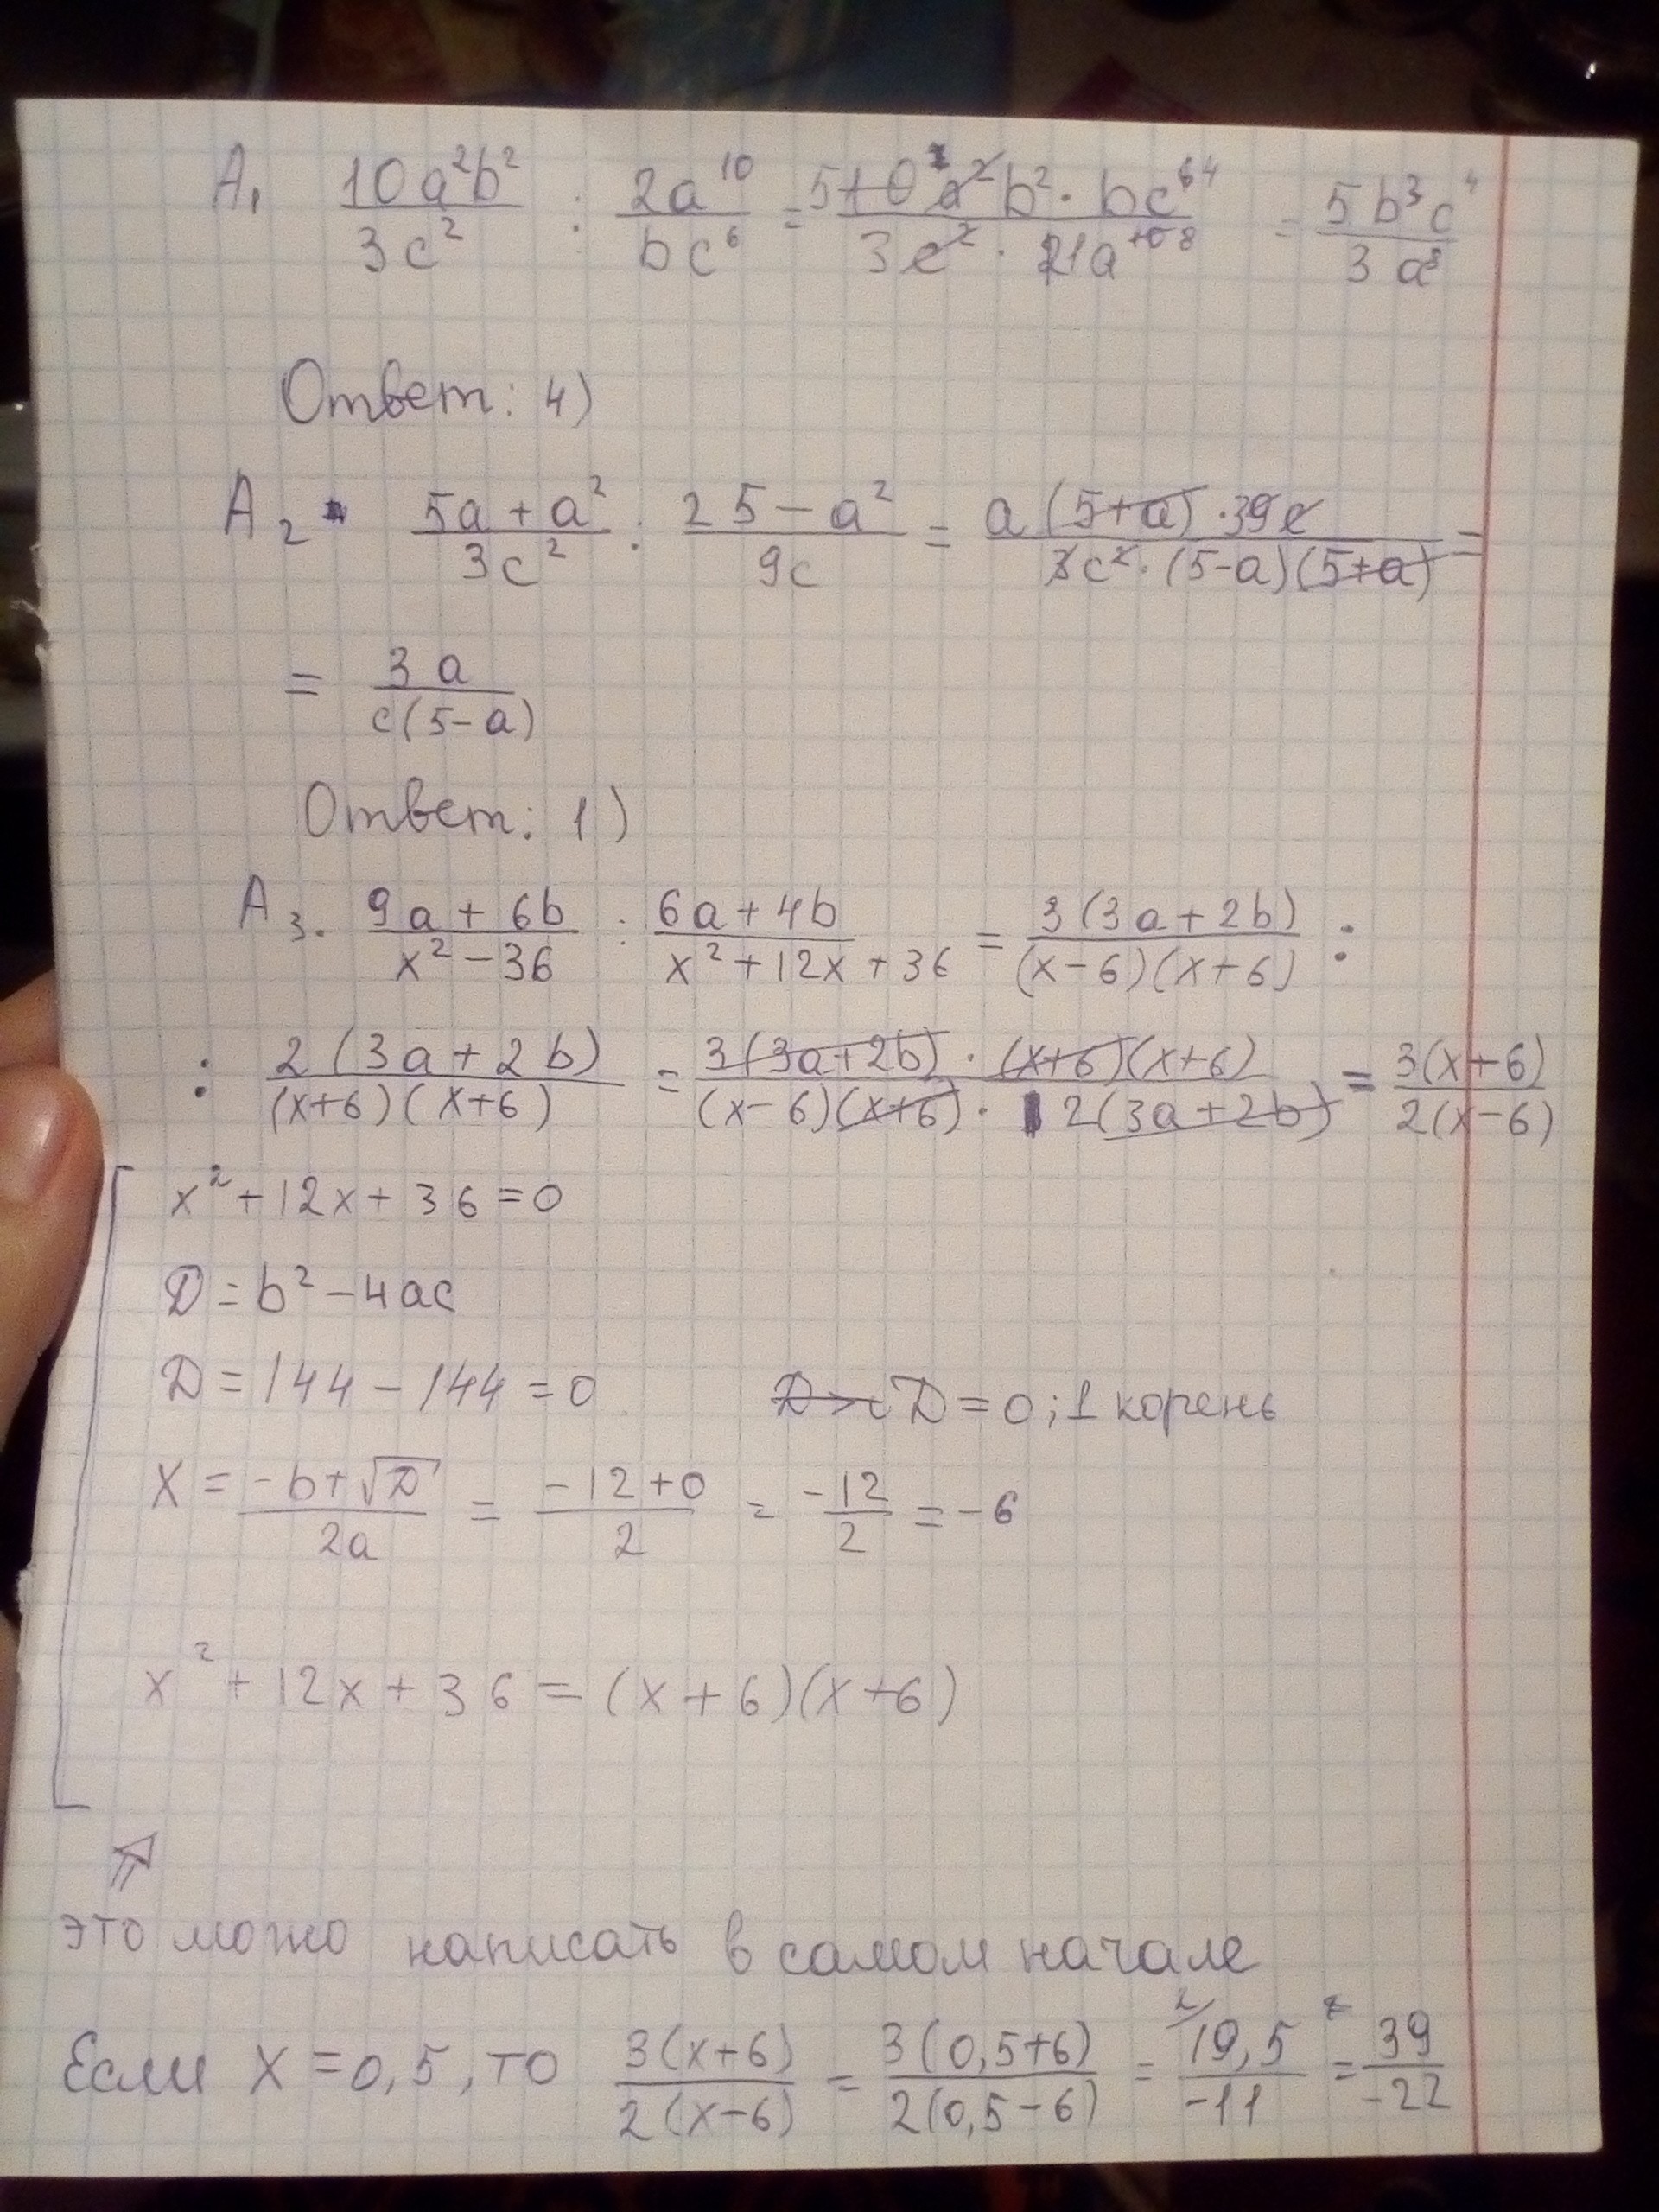 A1 10a²b²/3c² : 2a¹⁰/bc⁶ = 5 10 a² b² · bc⁶ ⁴/3c² · 21a¹⁰ ⁸ = 5b³c⁴/3a⁸
Ответ: 4)
A2 5a+a²/3c² : 25-a²/9c = a(5+a) · 39c/3c² · (5-a)(5+a) =
= 3a/c(5-a)
Ответ: 1)
A3. 9a+6b/x²-36 : 6a+4b/x²+12x+36 = 3(3a+2b)/(x-6)(x+6) :
: 2(3a+2b)/(x+6)(x+6) = 3(3a+2b) · (x+6)(x+6)/(x-6)(x+6) · 2(3a+2b) = 3(x+6)/2(x-6)
x²+12x+36=0
D=b²-4ac
D=144-144=0 D=0; 1 корень
X = -b+√D/2a = -12+0/2 = -12/2 = -6
x²+12x+36=(x+6)(x+6)
это можно написать в самом начале
Если X=0,5, то 3(x+6)/2(x-6) = 3(0,5+6)/2(0,5-6) = ²/19,5/-11 = 39/-22